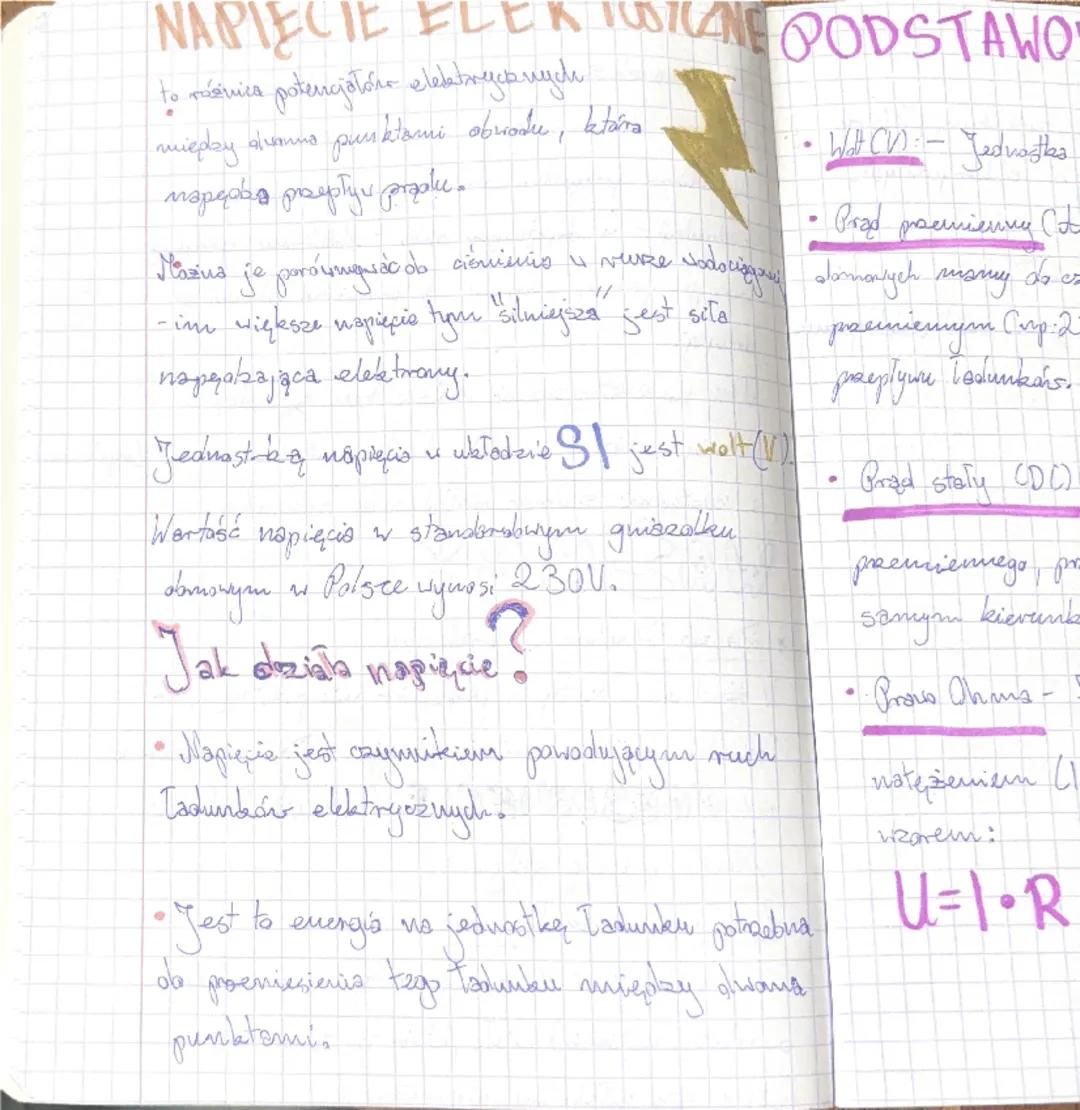 NAPIĘCIE ELEKTRYCZNE
to różnica potencjałów elektrycznych
między dwoma punktami obwodu, która
napędza przepływ prądu.
Można je porównywać do ciśnienia w rurze wodociągowej
- im większe napięcie tym "silniejsza" jest siła
napędzająca elektrony.
Jednostką napięcia w układzie SI jest wolt (V).
Wartość napięcia w standardowym gniazdku
domowym w Polsce wynosi 230V.
Jak działa napięcie?
• Napięcie jest czynnikiem powodującym ruch
ładunków elektrycznych.
• Jest to energia na jednostkę ładunku potrzebna
do przeniesienia tego ładunku między dwoma
punktami.
PODSTAWO
• Wolt (V): - Jednostka
• Prąd przemienny (
domowych mamy do cz
przemiennym (np: 2
przepływu ładunków.
• Prąd stały (DC)
przemiennego, pr
samym kierunk
• Prawo Ohma -
natężeniem (I
wzorem:
U=I•R